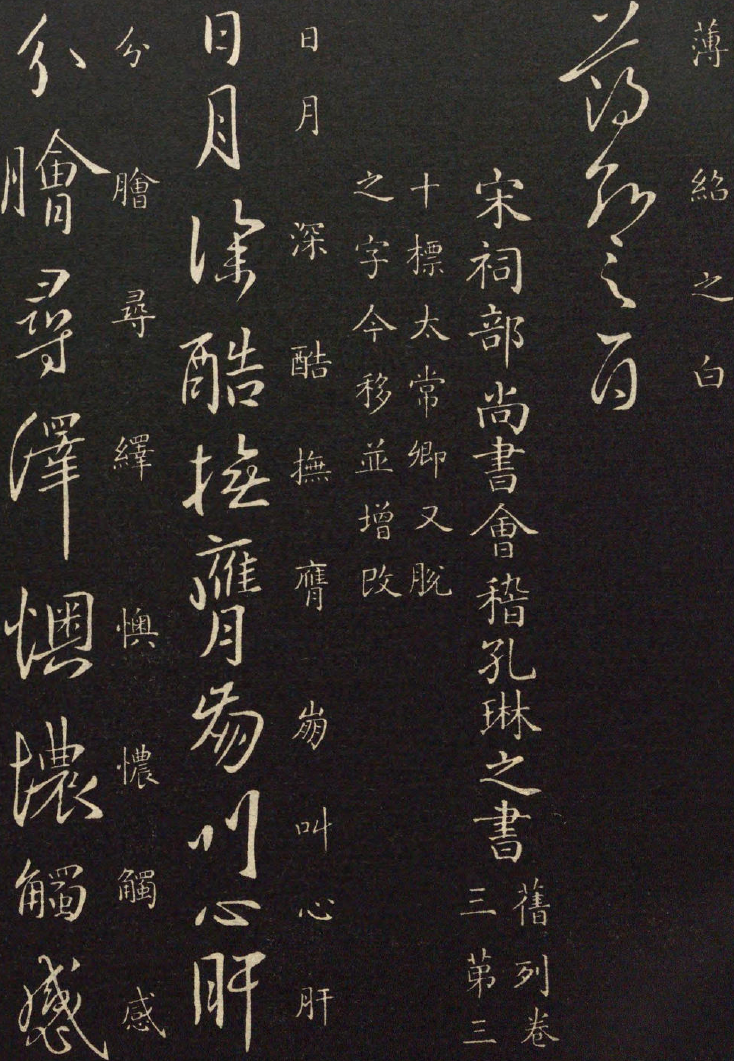 薄紹之白
薄紹之白
宋祠部尚書會稽孔琳之書
舊列卷
三第三
十標太常卿又脫
之字今移並增改
日月深酷撫膺崩叫心肝
日月深酷撫膺崩叫心肝
分膾尋繹懊憹觸感
分膾尋繹懊憹觸感